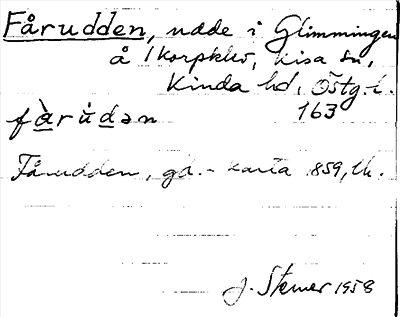 Fårudden, udde i Glimmingen
å Korpklev, Kisa sn,
Kinda hd, Östg.l.
fàrúdən 163
Fårudden, gd. - karta 859, lk.
J. Stemer 1958